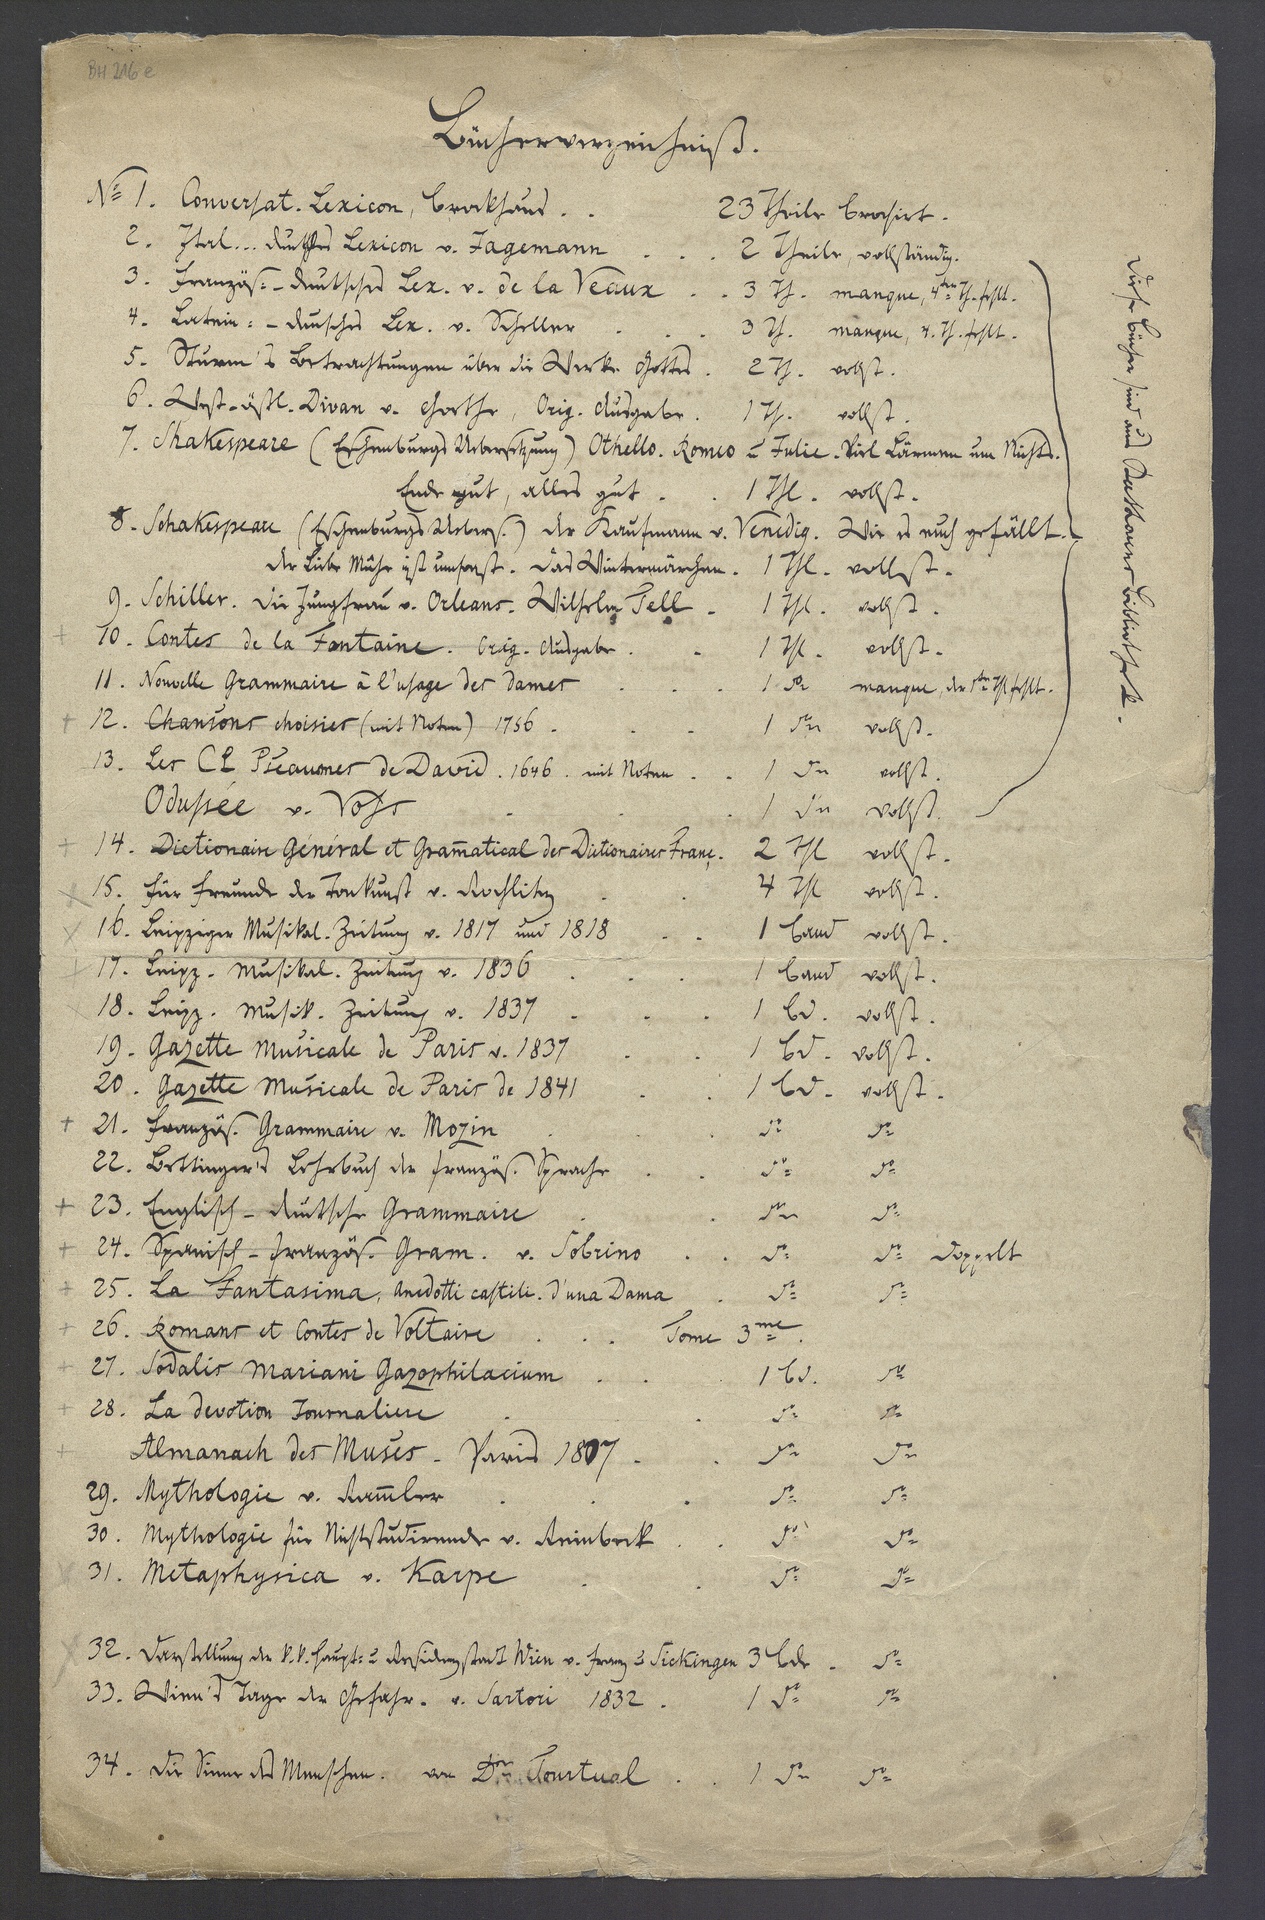 BH 216 e
Bücherverzeichniß.
Nº 1. Conversat. Lexicon, Brockhaus . . 23 Theile brochirt.
2. Ital... deutsches Lexicon v. Jagemann . . . 2 Theile, vollständig.
3. Französ:-deutsches Lex. v. de la Veaux . . 3 Th. manque, 4ter Th. fehlt.
4. Latein:-deutsches Lex. v. Scheller . . . 3 Th. manque, 4. Th. fehlt.
5. Sturm's Betrachtungen über die Werke Gottes . 2 Th. vollst.
6. West-östl. Divan v. Goethe, Orig. Ausgabe. 1 Th. vollst.
7. Shakespeare (Eschenburgs Uebersetzung) Othello. Romeo u Julie. Viel Lärmen um Nichts.
Ende gut, alles gut . . 1 Thl. vollst.
8. Schakespeare (Eschenburgs Uebers.) der Kaufmann v. Venedig. Wie es euch gefällt.
der Liebe Mühe ist umsonst. Das Wintermärchen. 1 Thl. vollst.
9. Schiller. Die Jungfrau v. Orleans. Wilhelm Tell . 1 Thl. vollst.
10. Contes de la Fontaine. Orig. Ausgabe . . 1 Thl. vollst.
11. Nouvelle Grammaire à l'usage des dames . . . 1 do manque, der 1te Thl fehlt.
12. Chansons choisies (mit Noten) 1756 . . . 1 do vollst.
13. Les CL Pseaumes de David. 1646. mit Noten . . 1 do vollst.
Odyssée v. Voss . . . 1 do vollst.
Diese Bücher sind aus Beethovens Bibliothek.
14. Dictionaire Général et Gramatical des Dictionaires Franç. 2 Thl vollst.
15. für Freunde der Tonkunst v. Rochlitz . . 4 Thl vollst.
16. Leipziger Musikal. Zeitung v. 1817 und 1818 . . 1 Band vollst.
17. Leipz. Musikal. Zeitung v. 1836 . . . 1 Band vollst.
18. Leipz. Musik. Zeitung v. 1837 . . . 1 Bd. vollst.
19. Gazette Musicale de Paris v. 1837 . . 1 Bd. vollst.
20. Gazette Musicale de Paris de 1841 . . 1 Bd. vollst.
21. Französ. Grammaire v. Mozin . . do do
22. Bettinger's Lehrbuch der französ. Sprache . . do do
23. Englisch-deutsche Grammaire . . do do
24. Spanisch-französ. Gram. v. Sobrino . . do do doppelt
25. La Fantasima, anedotti castili. d'una Dama . do do
26. Romans et Contes de Voltaire . . . Tome 3me.
27. Sodalis Mariani Gazophilacium . . . 1 Bd. do
28. La devotion Journaliere . . do do
Almanach des Muses. Paris 1807 . . do do
29. Mythologie v. Ramler . . . do do
30. Mythologie für Nichtstudirende v. Reinbeck . . do do
31. Metaphysica v. Karpe . . do do
32. Darstellung der k.k. Haupt- u Residenzstadt Wien v. Franz Sickingen 3 Bde. do
33. Wien's Tage der Gefahr. v. Sartori 1832 . 1 do do
34. Die Sinne des Menschen. von Dr Tourtual . . 1 do do